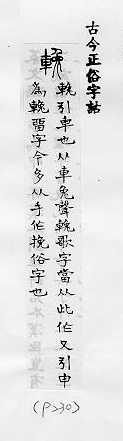 古今正俗字詁
輓
輓引車也从車免聲輓歌字當从此作又引申
為輓留字今多从手作挽俗字也
(P>30)